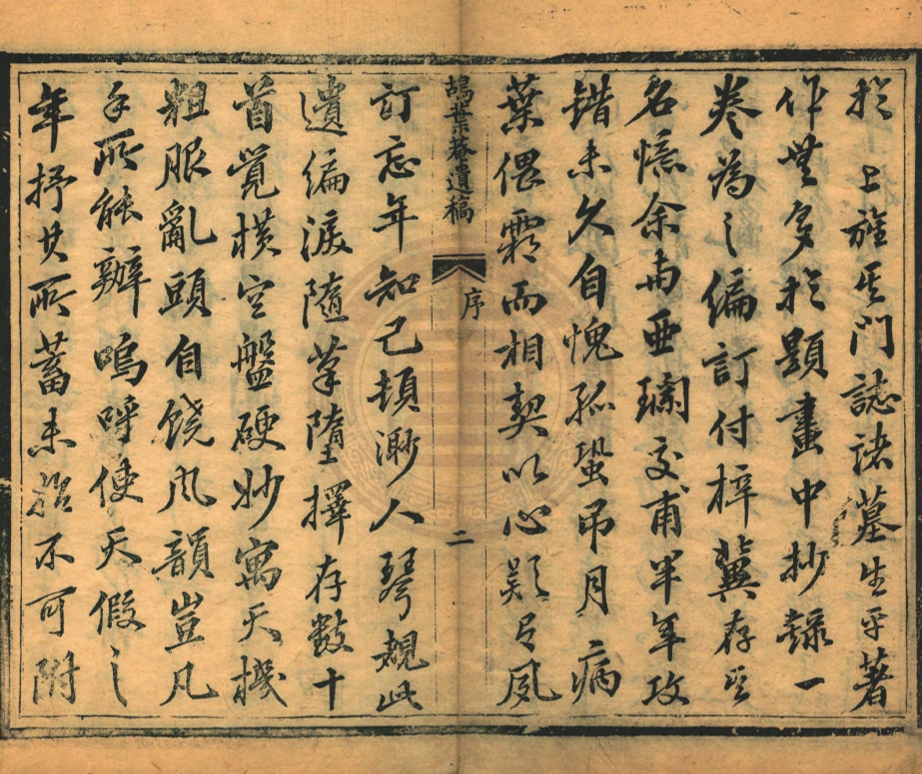 於上旌其門誌諸墓生平著
作無多於題畫中抄錄一
卷為之編訂付梓冀存其
名憶余與亞瀾交甫半年攻
錯未久自愧孤蛩吊月病
葉偎霜而相契以心疑有夙
葉菴遺稿
序
二
訂忘年知己頓渺人琴覩此
遺編淚隨筆墮擇存數十
首覺橫空盤硬妙寓天機
粗服亂頭自饒風韻豈凡
手所能辦嗚呼使天假之
年抒其所蓄未始不可附